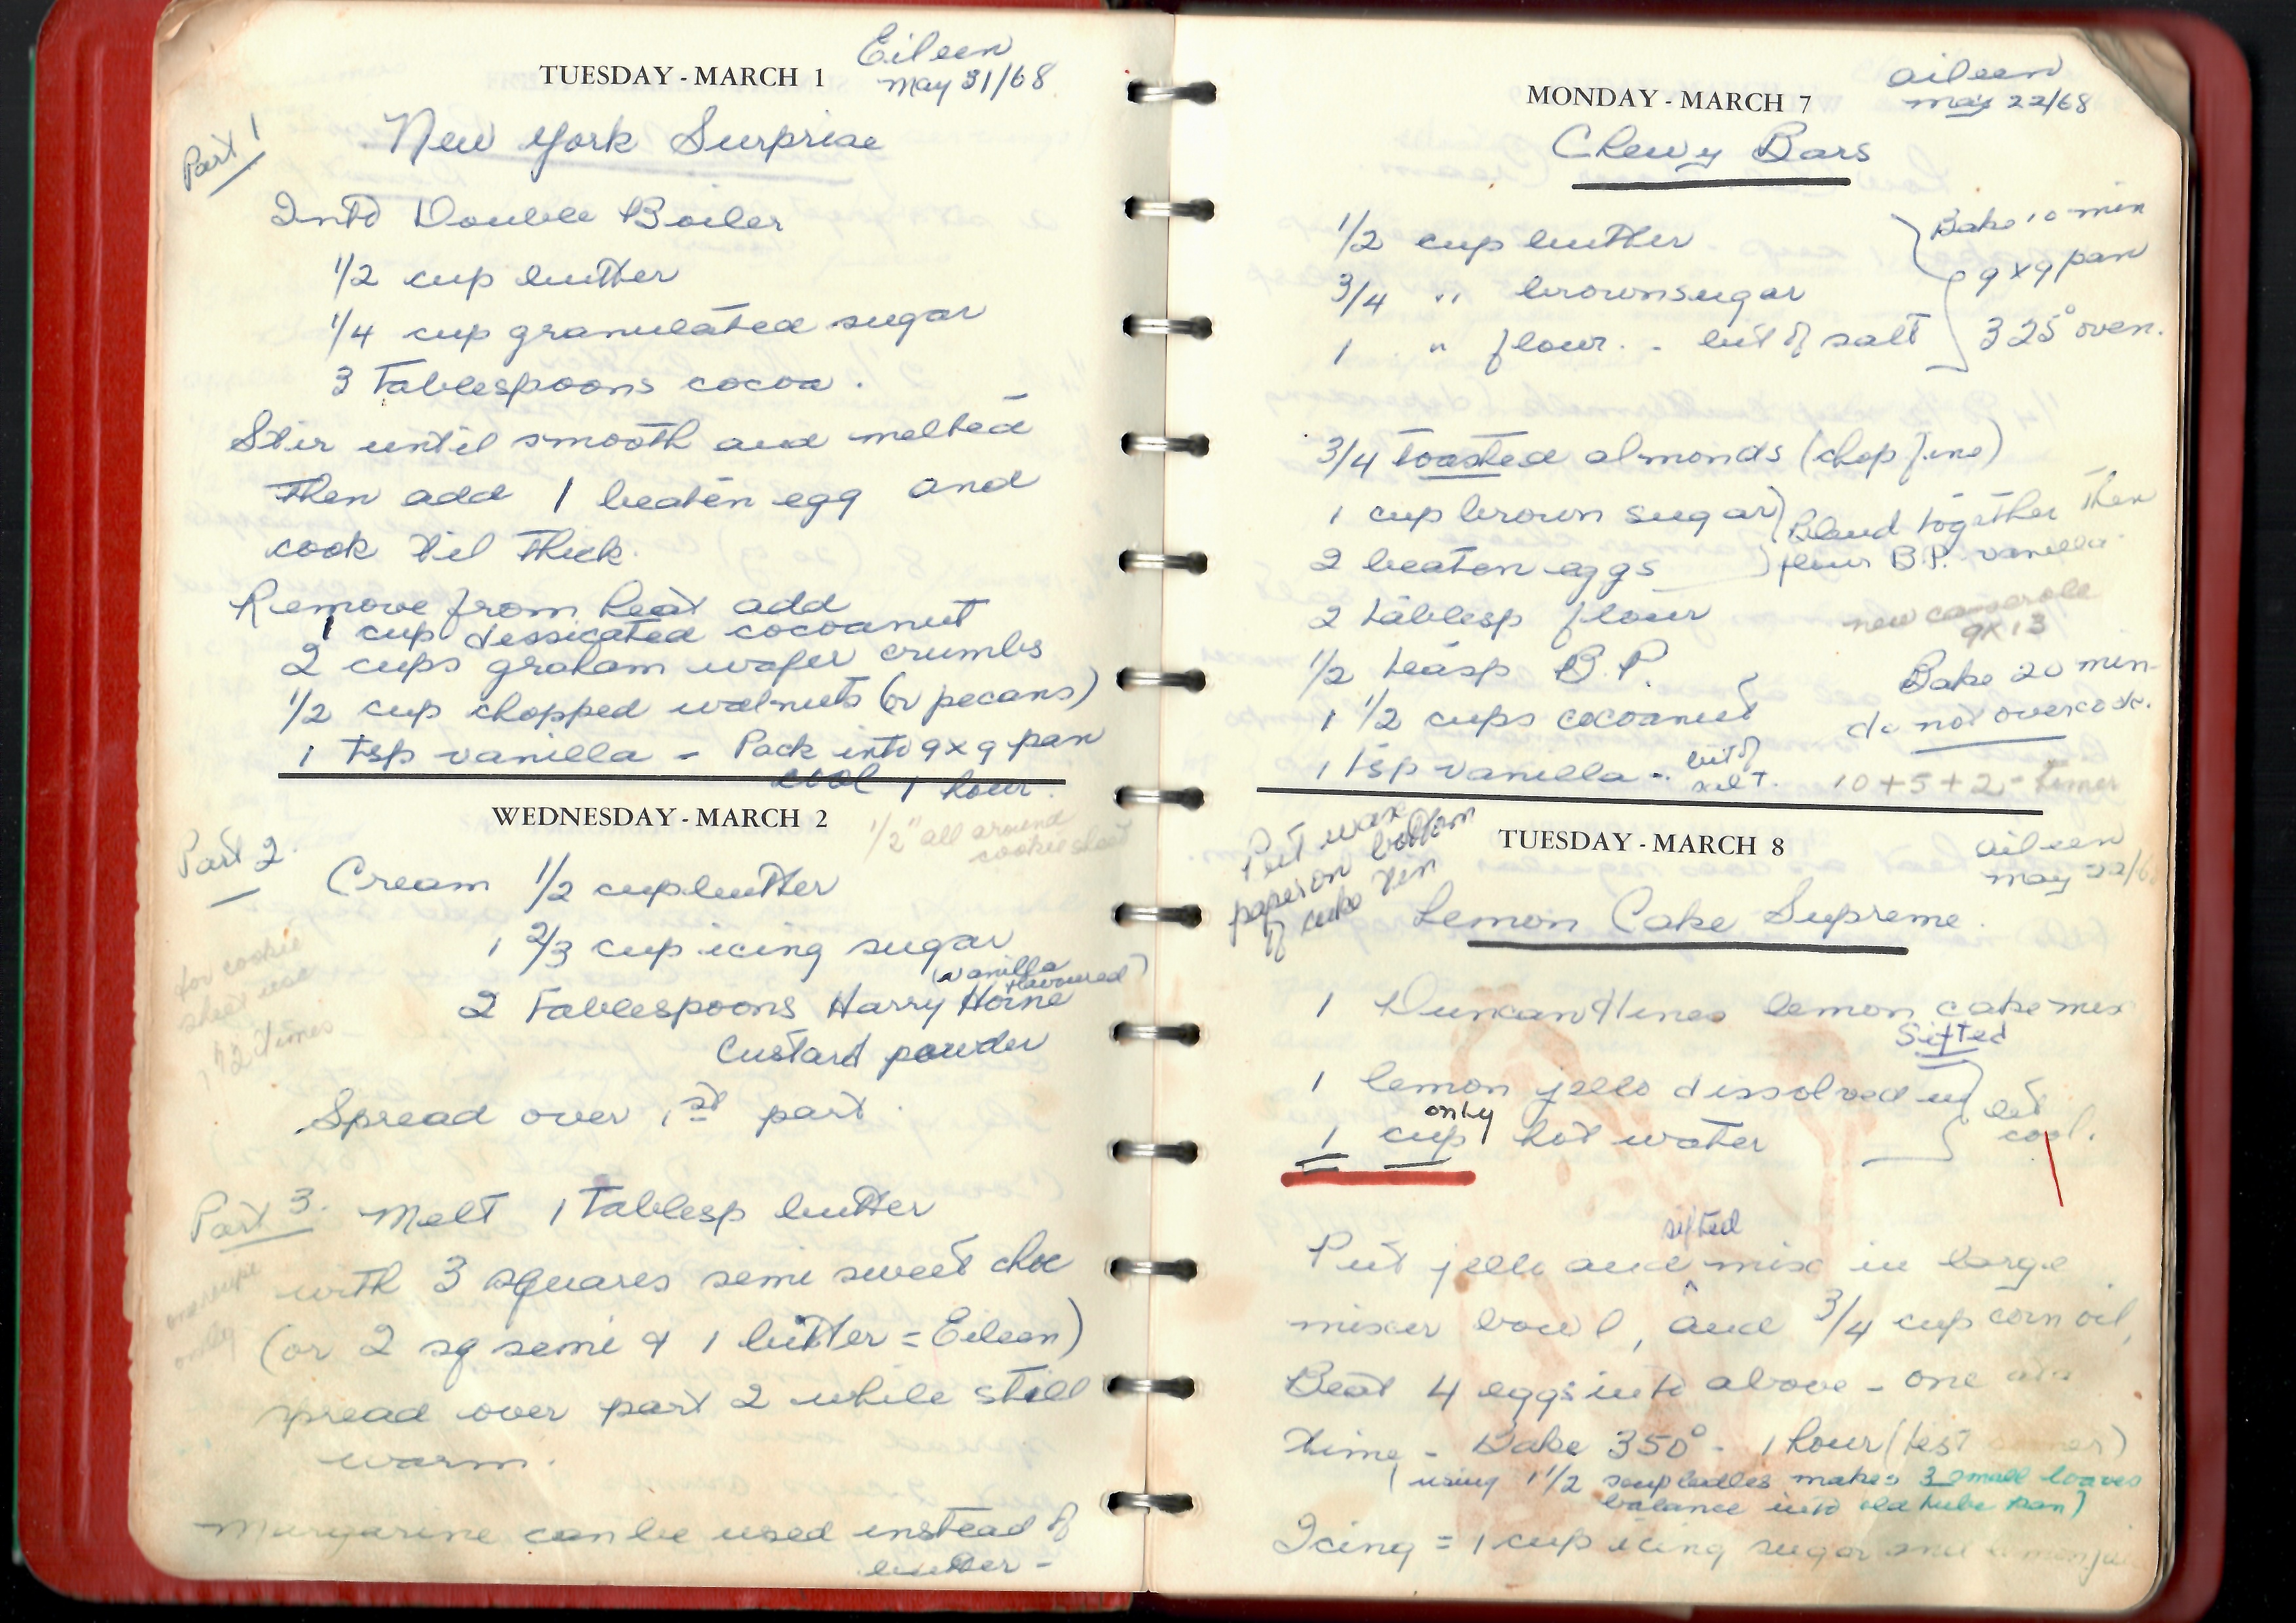 TUESDAY - MARCH 1
Eileen
May 31/68
Part 1
New York Surprise
Into Double Boiler
1/2 cup butter
1/4 cup granulated sugar
3 Tablespoons cocoa.
Stir until smooth and melted
Then add 1 beaten egg and
cook til thick.
Remove from heat add
1 cup dessicated cocoanut
2 cups graham wafer crumbs
1/2 cup chopped walnuts (or pecans)
1 tsp vanilla - Pack into 9x9 pan
cool 1 hour.
WEDNESDAY - MARCH 2
1/2" all around
cookie sheet
Part 2.
Cream 1/2 cup butter
1 2/3 cup icing sugar
(vanilla
flavoured)
2 Tablespoons Harry Horne
Custard powder
for cookie
sheet use
1 1/2 times
Spread over 1st part.
Part 3. Melt 1 Tablesp butter
with 3 squares semi sweet choc
(or 2 sq semi & 1 bitter = Eileen)
spread over part 2 while still
warm.
one recipe
only
Margarine can be used instead of
butter -
MONDAY - MARCH 7
aileen
may 22/68
Chewy Bars
1/2 cup butter
3/4 " brown sugar
1 " flour. - bit of salt
Bake 10 min
9x9 pan
325° oven.
3/4 toasted almonds (chop fine)
1 cup brown sugar
2 beaten eggs
Blend together then
flour B.P. vanilla
2 tablesp flour
1/2 teasp B.P.
1 1/2 cups cocoanut
1 tsp vanilla - bit of
salt.
new casserole
9x13
Bake 20 min-
do not overcook.
10+5+2 = timer
TUESDAY - MARCH 8
aileen
may 22/68
Put wax
paper on bottom
of cake tin
Lemon Cake Supreme.
1 Duncan Hines lemon cake mix
Sifted
1 lemon jello dissolved in
only
1 cup hot water
let
cool.
sifted
Put jello and ^ mix in large
mixer bowl, and 3/4 cup corn oil,
Beat 4 eggs into above - one at a
time - Bake 350° - 1 hour (test
(using 1 1/2 soup ladles makes 3 small loaves
balance into old tube pan)
Icing = 1 cup icing sugar and lemon